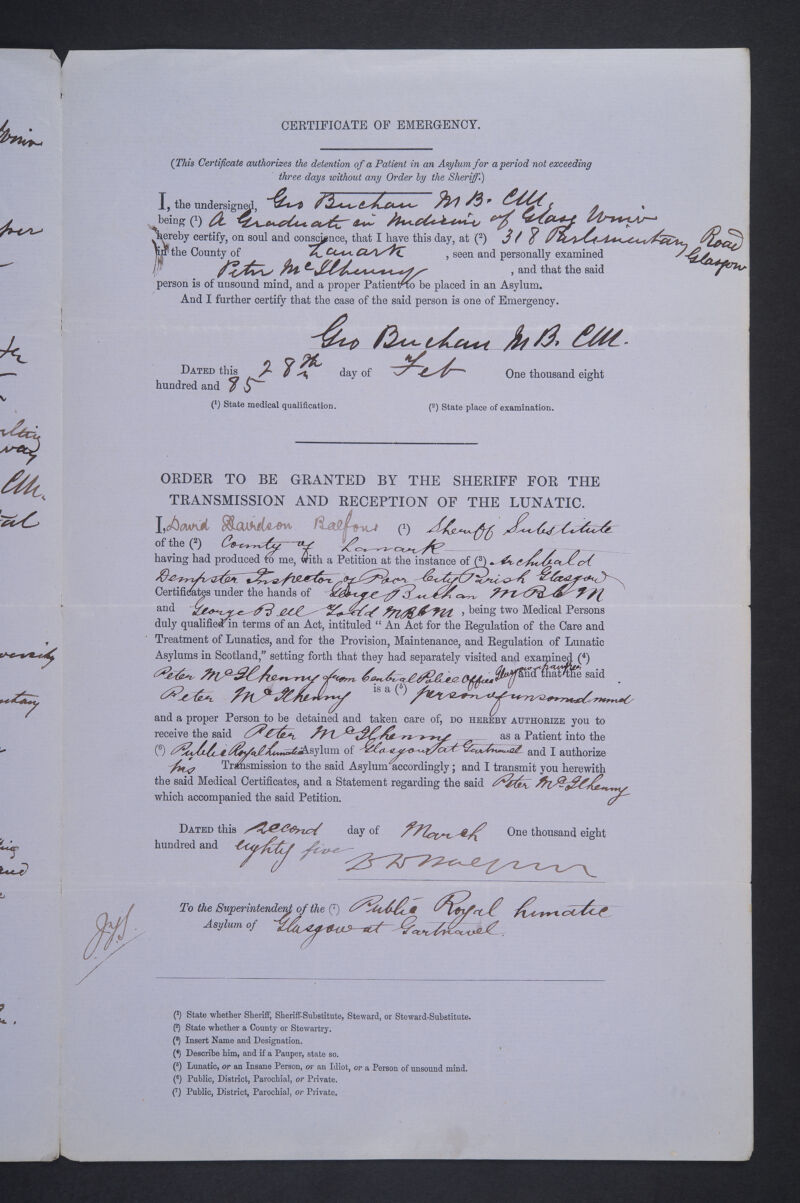 CERTIFICATE OF EMERGENCY.
(This Certificate authorizes the detention of a Patient in an Asylum for a period not exceeding
three days without any Order by the Sheriff.)
I, the undersigned, Geo Buchan M B. CM,
being (¹) A Graduate in Medicine of Glasg Univ
hereby certify, on soul and conscience, that I have this day, at (²) 318 Parliamentary Road
Glasgow
in the County of Lanark, seen and personally examined
Peter McIlhenny, and that the said
person is of unsound mind, and a proper Patient to be placed in an Asylum.
And I further certify that the case of the said person is one of Emergency.
Geo Buchan M B. CM.
DATED this 28th day of Feb One thousand eight
hundred and 85
(¹) State medical qualification. (²) State place of examination.
ORDER TO BE GRANTED BY THE SHERIFF FOR THE
TRANSMISSION AND RECEPTION OF THE LUNATIC.
I, David Davidson Balfour (¹) Sheriff Substitute
of the (²) County of Lanark
having had produced to me, with a Petition at the instance of (³) Archibald
Dempster Inspector of Poor City Parish Glasgow
Certificates under the hands of George Buchan M B C M
and George Bell Todd M B C M, being two Medical Persons
duly qualified in terms of an Act, intituled " An Act for the Regulation of the Care and
Treatment of Lunatics, and for the Provision, Maintenance, and Regulation of Lunatic
Asylums in Scotland," setting forth that they had separately visited and examined (⁴)
Peter McIlhenny from Central Police Office Glasgow a pauper and that the said
Peter McIlhenny is a (⁵) person of unsound mind
and a proper Person to be detained and taken care of, DO HEREBY AUTHORIZE you to
receive the said Peter McIlhenny as a Patient into the
(⁶) Public Royal Lunatic Asylum of Glasgow at Gartnavel and I authorize
his Transmission to the said Asylum accordingly; and I transmit you herewith
the said Medical Certificates, and a Statement regarding the said Peter McIlhenny
which accompanied the said Petition.
DATED this second day of March One thousand eight
hundred and eighty five
D D Balfour
To the Superintendent of the (⁷) Public Royal Lunatic
Asylum of Glasgow at Gartnavel.
(¹) State whether Sheriff, Sheriff-Substitute, Steward, or Steward-Substitute.
(²) State whether a County or Stewartry.
(³) Insert Name and Designation.
(⁴) Describe him, and if a Pauper, state so.
(⁵) Lunatic, or an Insane Person, or an Idiot, or a Person of unsound mind.
(⁶) Public, District, Parochial, or Private.
(⁷) Public, District, Parochial, or Private.